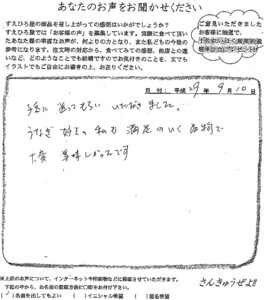 あなたのお声をお聞かせください
すえひろ屋の商品を召し上がっての感想はいかがでしょうか？
すえひろ屋では「お客様の声」を募集しています。実際に食べて頂い
たあなた様の率直なお声が、何よりの力となり、また私どもの今後の
参考になります。注文時の対応から、食べてみての感想、他店との違
いなど、どのようなことでも結構ですのでお気付きのことを、文でも
イラストでもご自由にお書きの上、お送りください。
ご意見いただきました
お客様に抽選で、
日付： 平成 29年 9月 10日
孫に送ってもらい いただきました。
うなぎ 好きの 私も 満足のいく 品物で
大変 美味しかったです
※上記のお声について、インターネットや印刷物などに掲載させていただきます。
下記の中から、お名前の掲載方法に○印をお付け下さい。
( )名前を出してもよい ( )イニシャル希望 ( )匿名希望
さんきゅうぜよ!!